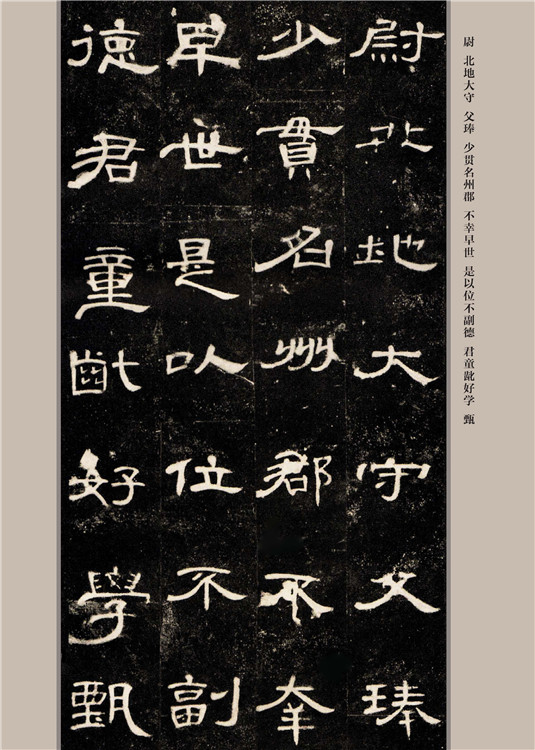 尉 北地大守 父琫 少贯名州郡 不幸早世 是以位不副德 君童龀好学 甄
尉北地大守父琫
少貫名州郡不幸
早世是以位不副
德君童齔好學甄